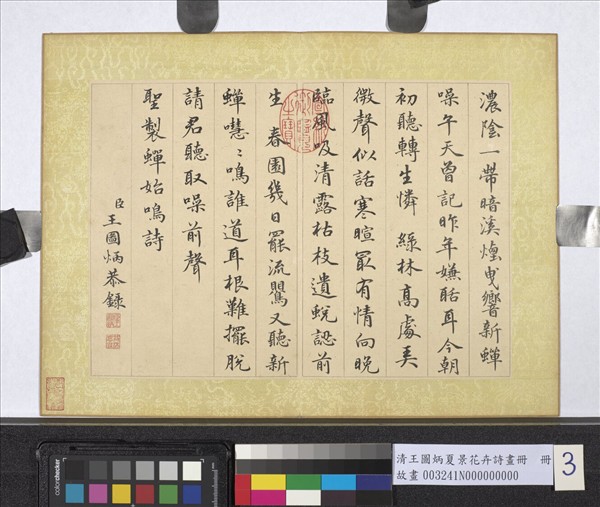 濃陰一帶暗溪煙曳響新蟬
噪午天曾記昨年嫌聒耳今朝
初聽轉生憐 綠林高處美
微聲似話寒暄最有情向晚
臨風吸清露枯枝遺蛻認前
生 春園幾日罷流鶯又聽新
蟬嘒〻鳴誰道耳根難擺脫
請君聽取噪前聲
聖製蟬始鳴詩
臣王圖炳恭錄
清王圖炳夏景花卉詩畫冊 冊
故畫 003241N000000000
3
colorchecker